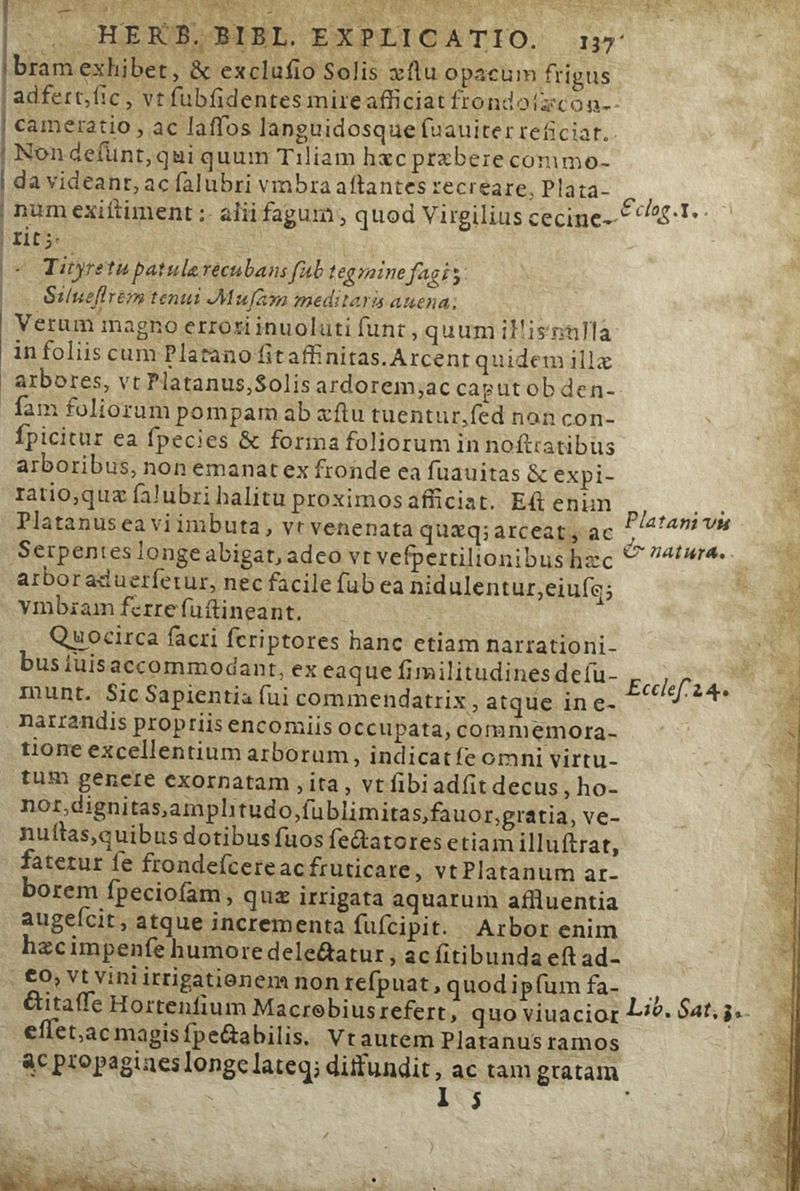 HERB. BIBL. EXPLICATIO. 137
bram exhibet, & exclusio Solis æstu opacum frigus
adfert, sic, vt subsidentes mire afficiat frondosa con-
cameratio, ac lassos languidosque suauiter reficiat.
Non desunt, qui quum Tiliam hæc præbere commo-
da videant, ac salubri vmbra astantes recreare, Plata-
num existiment: alii fagum, quod Virgilius cecine- Eclog. 1.
rit;
Tityre tu patulæ recubans sub tegmine fagi;
Siluestrem tenui Musam meditaris auena.
Verum magno errori inuoluti sunt, quum illis nulla
in foliis cum Platano sit affinitas. Arcent quidem illæ
arbores, vt Platanus, Solis ardorem, ac caput ob den-
sam foliorum pompam ab æstu tuentur, sed non con-
spicitur ea species & forma foliorum in nostratibus
arboribus, non emanat ex fronde ea suauitas & expi-
ratio, quæ salubri halitu proximos afficiat. Est enim
Platanus ea vi imbuta, vt venenata quæq; arceat, ac Platani vis
Serpentes longe abigat, adeo vt vespertilionibus hæc & natura.
arbor aduersetur, nec facile sub ea nidulentur, eiusq;
vmbram ferre sustineant.
Quocirca sacri scriptores hanc etiam narrationi-
bus suis accommodant, ex eaque similitudines desu-
munt. Sic Sapientia sui commendatrix, atque in e- Eccles. 24.
narrandis propriis encomiis occupata, commemora-
tione excellentium arborum, indicat se omni virtu-
tum genere exornatam, ita, vt sibi adsit decus, ho-
nor, dignitas, amplitudo, sublimitas, fauor, gratia, ve-
nustas, quibus dotibus suos sectatores etiam illustrat,
fatetur se frondescere ac fruticare, vt Platanum ar-
borem speciosam, quæ irrigata aquarum affluentia
augescit, atque incrementa suscipit. Arbor enim
hæc impense humore delectatur, ac sitibunda est ad-
eo, vt vini irrigationem non respuat, quod ipsum fa-
ctitasse Hortensium Macrobius refert, quo viuacior Lib. Sat. 3.
esset, ac magis spectabilis. Vt autem Platanus ramos
ac propagines longe lateq; diffundit, ac tam gratam
I 5